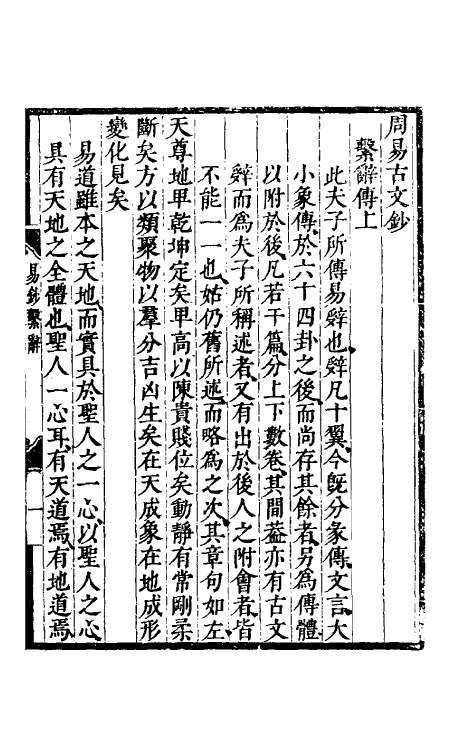 周易古文鈔
繫辭傳上
此夫子所傳易辭也辭凡十翼今旣分彖傳文言大
小象傳於六十四卦之後而尚存其餘者另爲傳體
以附於後凡若干篇分上下數卷其間葢亦有古文
辭而爲夫子所稱述者又有出於後人之附會者皆
不能一一也姑仍舊所述而略爲之次其章句如左
天尊地卑乾坤定矣卑高以陳貴賤位矣動靜有常剛柔
斷矣方以類聚物以羣分吉凶生矣在天成象在地成形
變化見矣
易道雖本之天地而實具於聖人之一心以聖人之心
具有天地之全體也聖人一心耳有天道焉有地道焉
易鈔繫辭
一